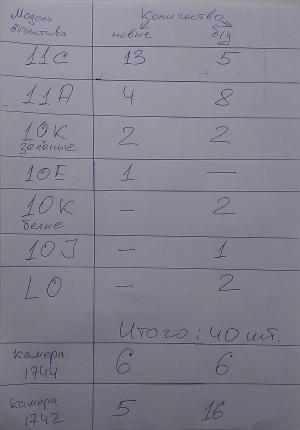 Модель объектива Количество
новые б/у
11С 13 5
11А 4 8
10К зеленые 2 2
10Е 1 —
10К белые - 2
10J - 1
LO - 2
Итого: 40 шт.
камера 1744 6 6
камера 1742 5 16